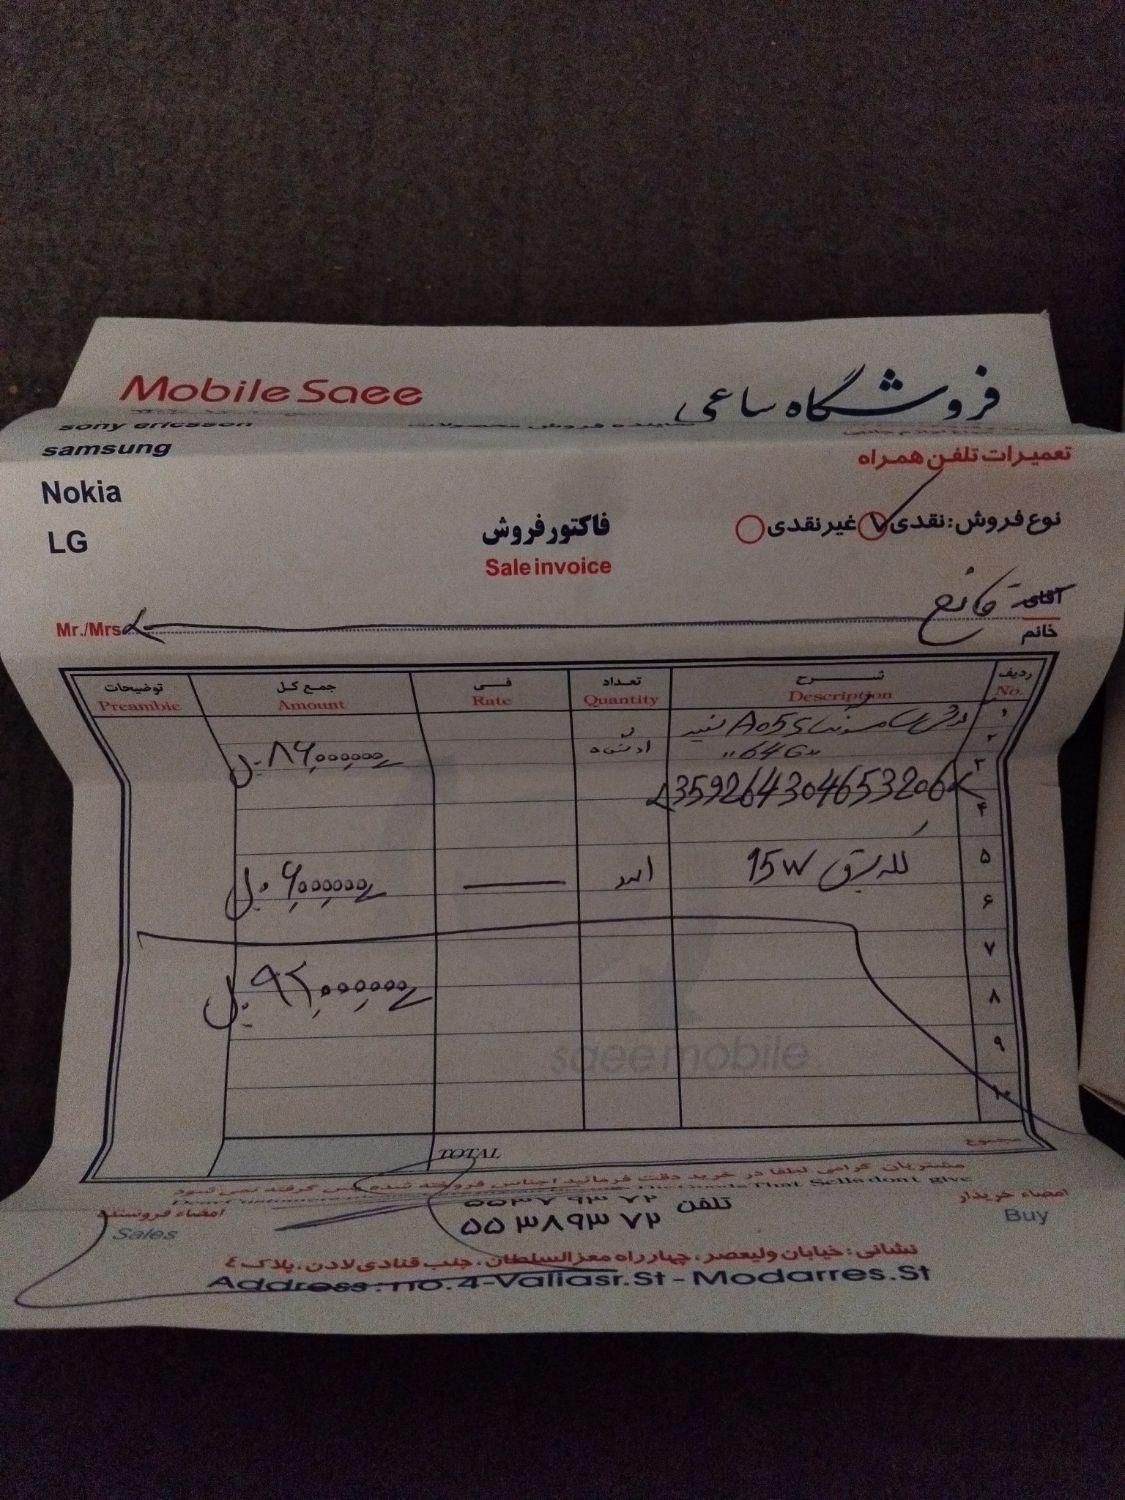 Mobile Saee
فروشگاه ساعی
sony ericsson
نماینده فروش محصولات
samsung
تعمیرات تلفن همراه
Nokia
LG
نوع فروش: نقدی غیر نقدی
فاکتور فروش
Sale invoice
آقای قانع
خانم
Mr./Mrs
ردیف شرح تعداد فی جمع کل توضیحات
No. Description Quantity Rate Amount Preambie
۱ A05S
۲ "64G"
۸۶,۰۰۰,۰۰۰
۳ 359264304653206
۴
۵ 15W ۶,۰۰۰,۰۰۰
۶
۷
۸ ۹۲,۰۰۰,۰۰۰
۹
۱۰
saee mobile
مجموع TOTAL
مشتریان گرامی لطفا در خرید دقت فرمائید اجناس فروخته شده پس گرفته نمی شود
That Sells dont give
امضاء خریدار
Buy
تلفن ۵۵۳۷۹۳۷۲
۵۵۳۸۹۳۷۲
امضاء فروشنده
Sales
نشانی: خیابان ولیعصر، چهارراه معزالسلطان، جنب قنادی لادن، پلاک ٤
Address: no.4-Valiasr.St-Modarres.St